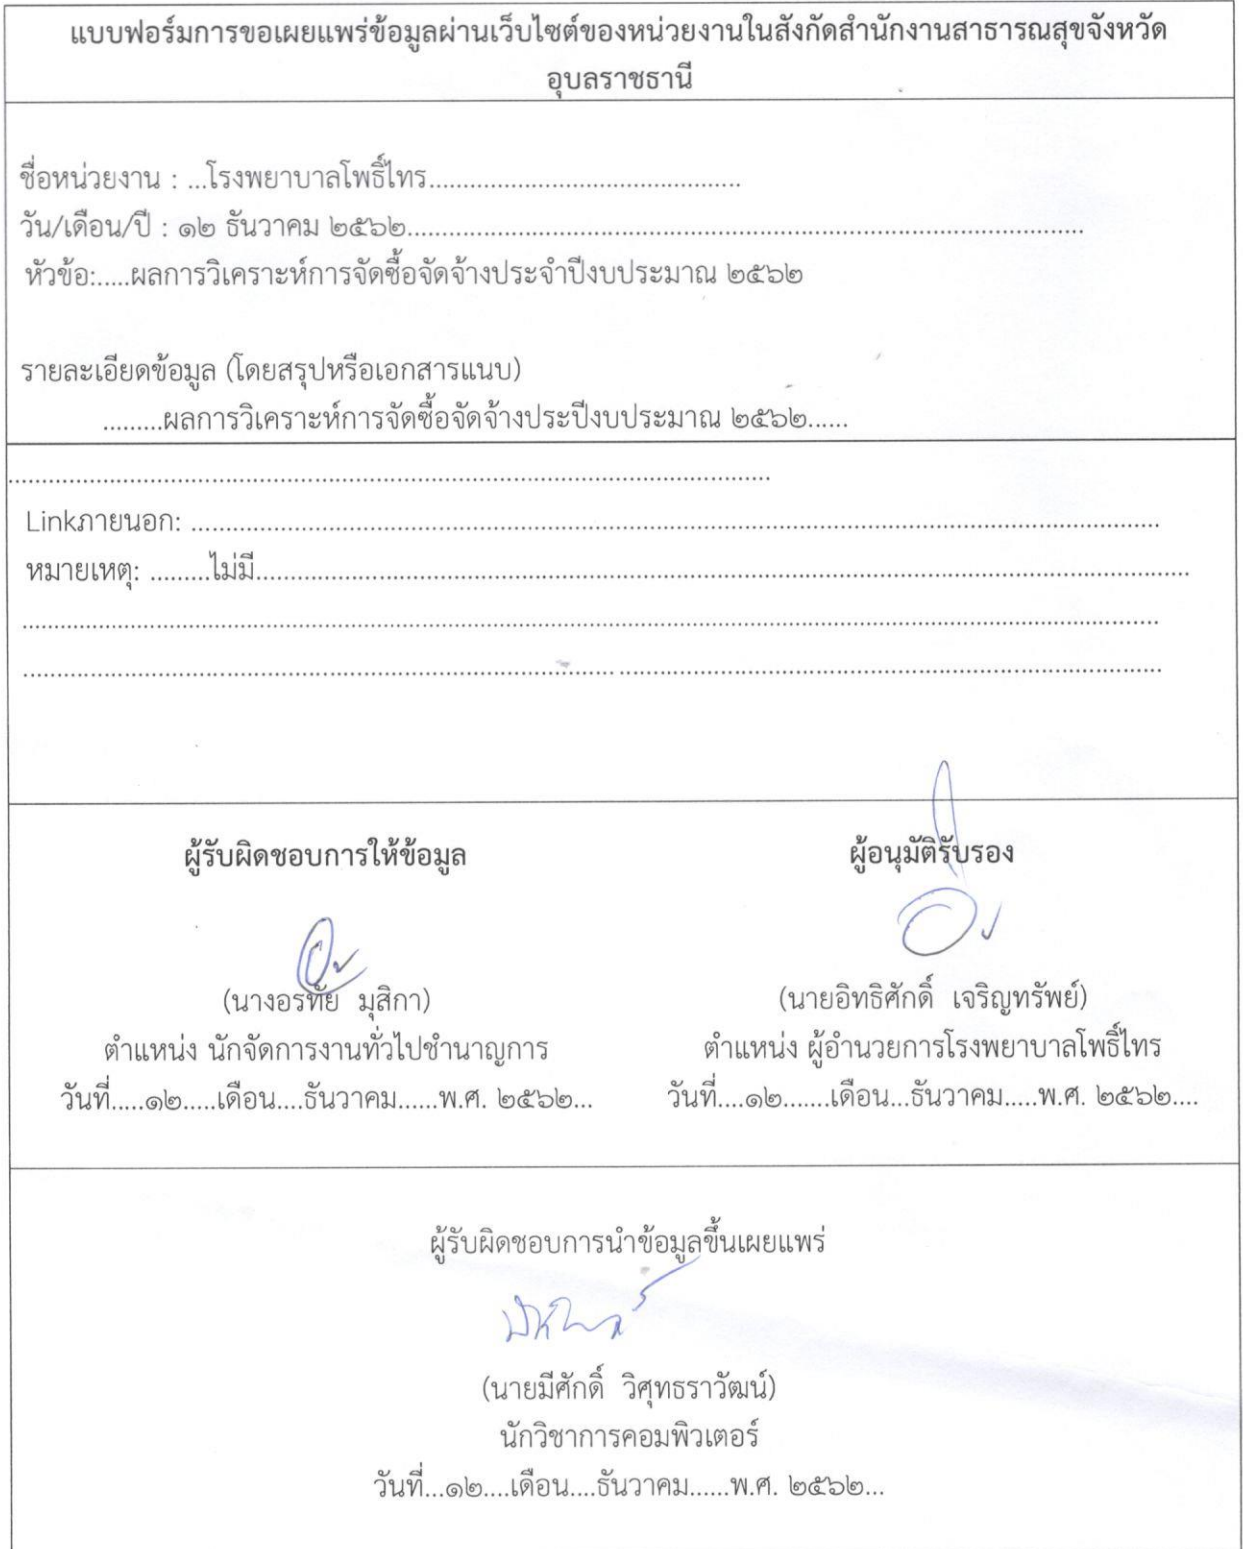 แบบฟอร์มการขอเผยแพร่ข้อมูลผ่านเว็บไซต์ของหน่วยงานในสังกัดสำนักงานสาธารณสุขจังหวัด
อุบลราชธานี
ชื่อหน่วยงาน : ...โรงพยาบาลโพธิ์ไทร.............................................
วัน/เดือน/ปี : ๑๒ ธันวาคม ๒๕๖๒.................................................................................................
หัวข้อ:.....ผลการวิเคราะห์การจัดซื้อจัดจ้างประจำปีงบประมาณ ๒๕๖๒
รายละเอียดข้อมูล (โดยสรุปหรือเอกสารแนบ)
.........ผลการวิเคราะห์การจัดซื้อจัดจ้างประปีงบประมาณ ๒๕๖๒......
..............................................................................................................
Linkภายนอก: ...........................................................................................................................................
หมายเหตุ: .........ไม่มี.....................................................................................................................................
....................................................................................................................................................................
....................................................................................................................................................................
ผู้รับผิดชอบการให้ข้อมูล ผู้อนุมัติรับรอง
(นางอรทัย มุสิกา) (นายอิทธิศักดิ์ เจริญทรัพย์)
ตำแหน่ง นักจัดการงานทั่วไปชำนาญการ ตำแหน่ง ผู้อำนวยการโรงพยาบาลโพธิ์ไทร
วันที่.....๑๒.....เดือน....ธันวาคม......พ.ศ. ๒๕๖๒... วันที่....๑๒.......เดือน...ธันวาคม.....พ.ศ. ๒๕๖๒....
ผู้รับผิดชอบการนำข้อมูลขึ้นเผยแพร่
(นายมีศักดิ์ วิศุทธราวัฒน์)
นักวิชาการคอมพิวเตอร์
วันที่...๑๒....เดือน....ธันวาคม......พ.ศ. ๒๕๖๒...